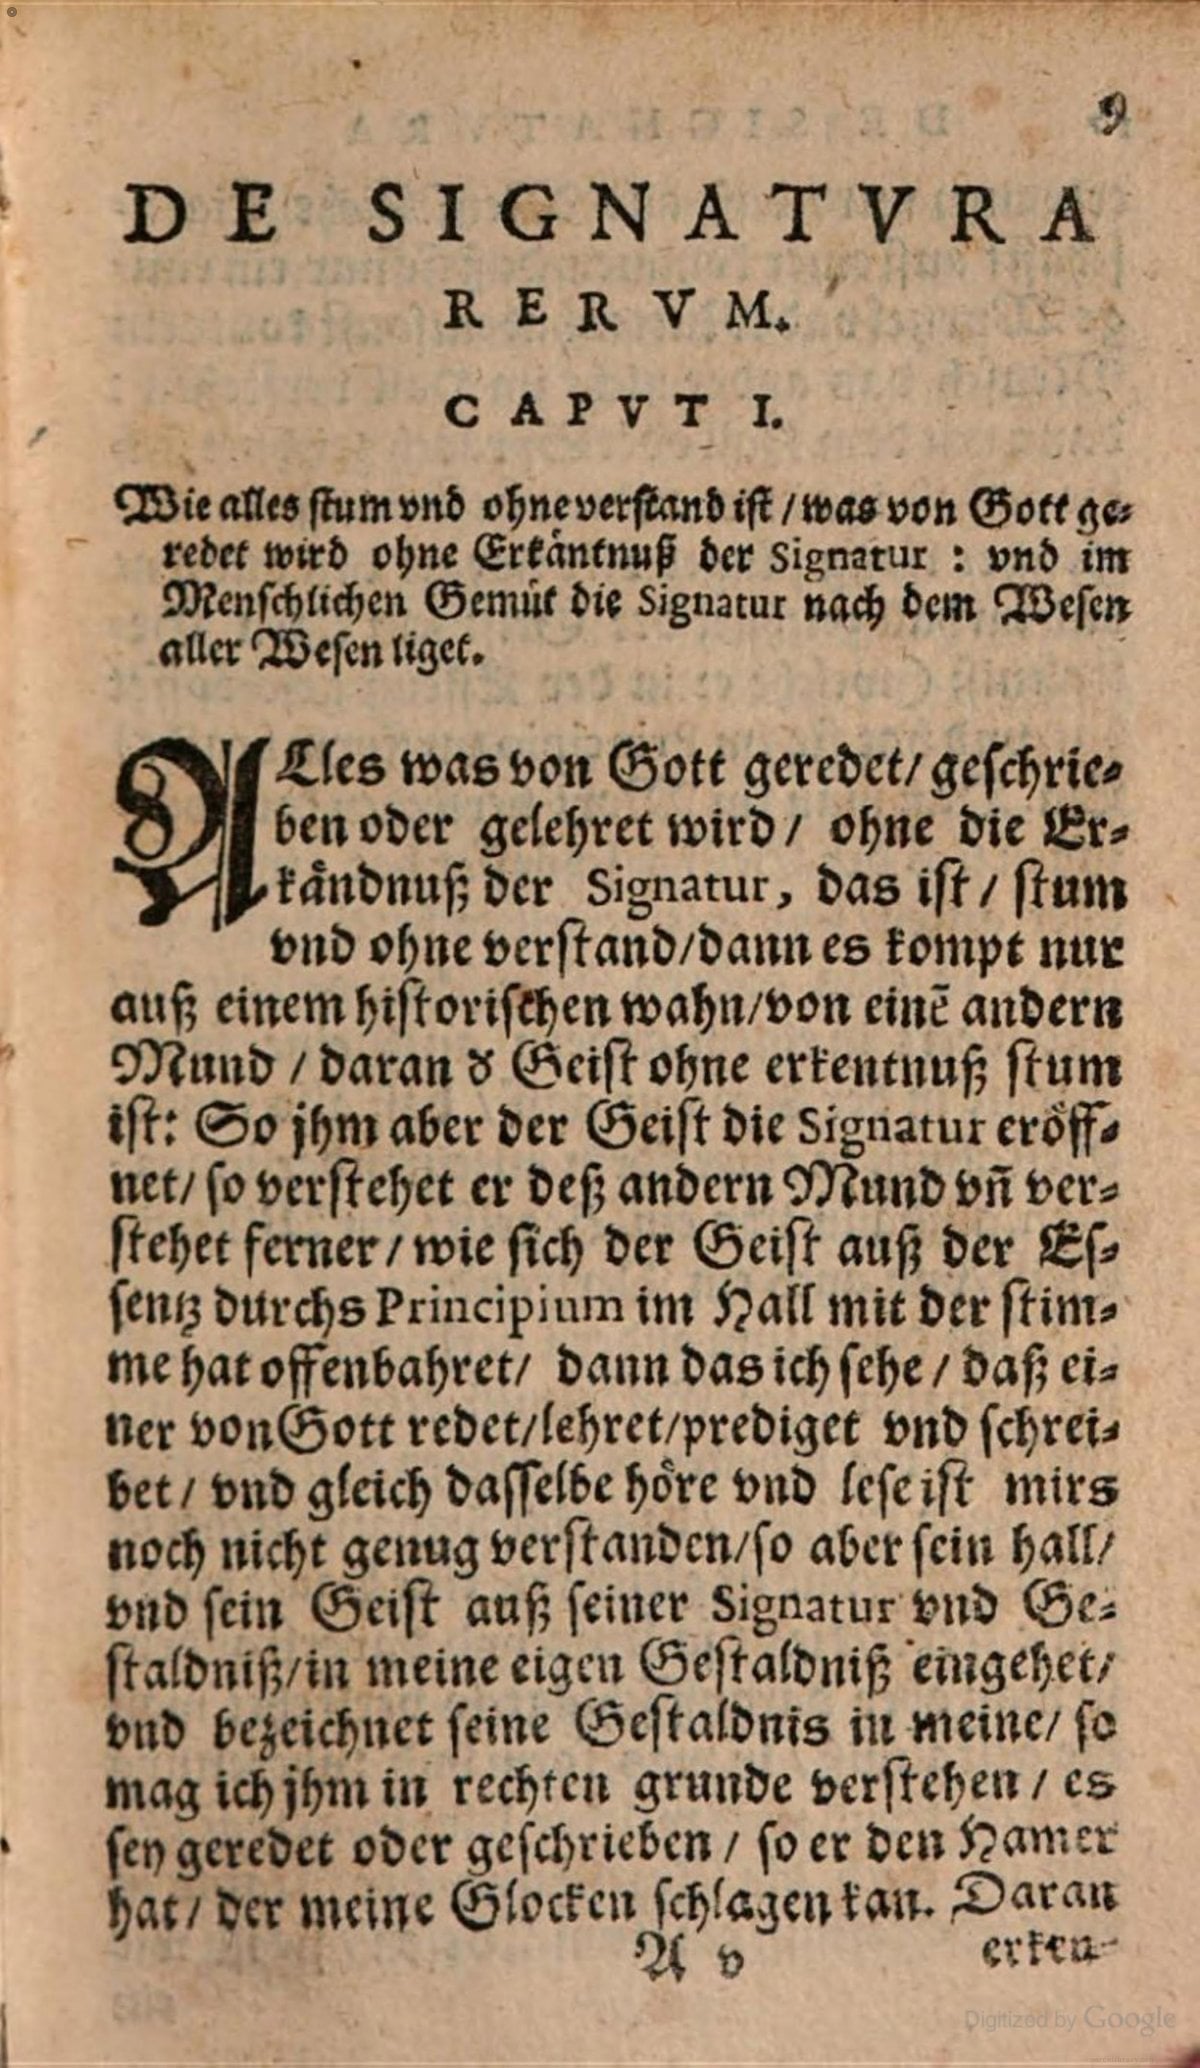 9
DE SIGNATVRA
RERVM.
CAPVT I.
Wie alles stum vnd ohne verstand ist / was von Gott ge⸗
redet wird ohne Erkäntnuß der Signatur : vnd im
Menschlichen Gemüt die Signatur nach dem Wesen
aller Wesen liget.
ALles was von Gott geredet/ geschrie⸗
ben oder gelehret wird / ohne die Er⸗
kändnuß der Signatur, das ist / stum
vnd ohne verstand/dann es kompt nur
auß einem historischen wahn/von einē andern
Mund / daran ꝺ Geist ohne erkentnuß stum
ist: So jhm aber der Geist die Signatur eröff⸗
net/ so verstehet er deß andern Mund vñ ver⸗
stehet ferner / wie sich der Geist auß der Es⸗
sentz durchs Principium im Hall mit der stim⸗
me hat offenbahret/ dann das ich sehe / daß ei⸗
ner von Gott redet/lehret/prediget vnd schrei⸗
bet / vnd gleich dasselbe höre vnd lese ist mirs
noch nicht genug verstanden/so aber sein hall/
vnd sein Geist auß seiner Signatur vnd Ge⸗
staldniß/in meine eigen Gestaldniß eingehet/
vnd bezeichnet seine Gestaldnis in meine/ so
mag ich jhm in rechten grunde verstehen / es
sey geredet oder geschrieben / so er den Hamer
hat / der meine Glocken schlagen kan. Daran
A v erken⸗
Digitized by Google